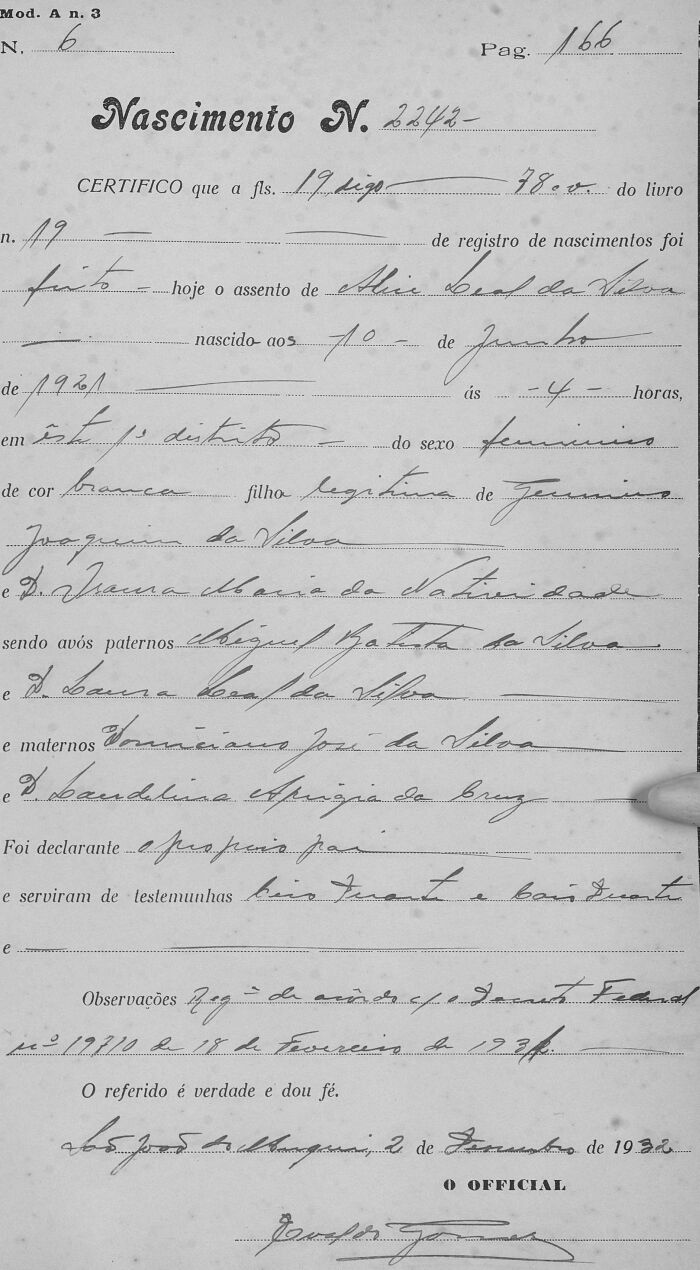 Mod. A n. 3
N. 6 Pag. 166
Nascimento N. 2242-
CERTIFICO que a fls. 19 digo 78 v. do livro
n. 19 de registro de nascimentos foi
feito hoje o assento de Alice Leal da Silva
nascido aos 10 de Junho
de 1921 ás -4- horas,
em êste 1º distrito do sexo feminino
de cor branca filha legitima de
Joaquim da Silva
e D. Maria da Natividade
sendo avós paternos Miguel Batista da Silva
e D. Laura Leal da Silva
e maternos Domiciano José da Silva
e D. Laudelina Aprigia da Cruz
Foi declarante o proprio pai
e serviram de testemunhas Duarte e Duarte
e
Observações Reg º de acôrdo c/ o Decreto Federal
nº 19710 de 18 de Fevereiro de 1931.
O referido é verdade e dou fé.
São João do 2 de Dezembro de 1932
O OFFICIAL
Gomes